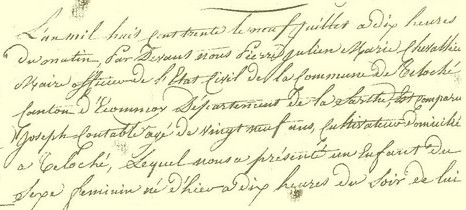 L'an mil huit cent trente le neuf juillet a dix heures
du matin, Par Devant nous Pierre Julien Marie Chevallier
Maire officier de l'Etat Civil de la Commune de Teloché
Canton d'Ecommoy Departement de la Sarthe, Est comparu
Joseph Contable agé de vingt neuf ans, Cultivateur domicilié
a Teloché, Lequel nous a présenté un Enfant du
Sexe feminin né d'hier a dix heures du Soir de lui